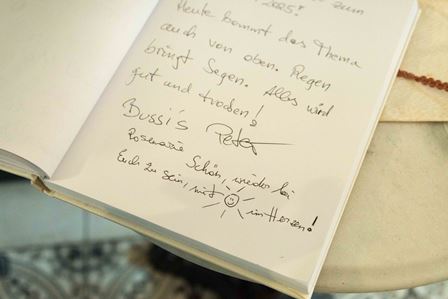 zum
2025!
Heute kommt das Thema
auch von oben. Regen
bringt Segen. Alles wird
gut und trocken!
Bussi's Peter
Rosemarie Schön, wieder bei
Euch zu sein, mit im Herzen!